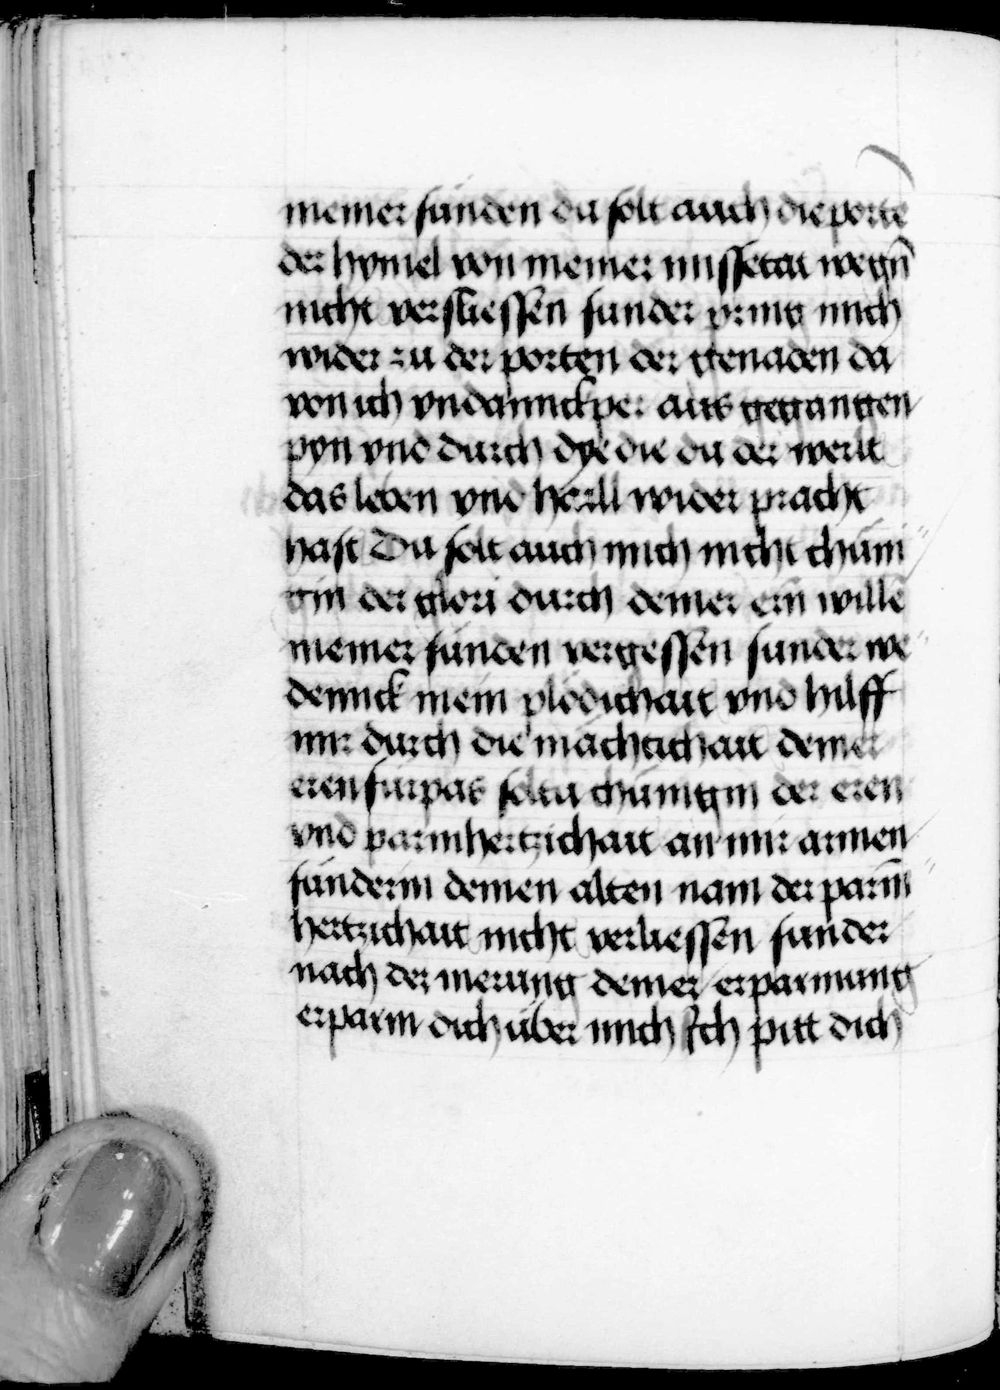 meiner sünden du solt auch die porte
der hymel von meiner missetat wegn̄
nicht versliessen sunder pring mich
wider zu der porten der genaden da
von ich vndannckper aus gegangen
pyn vnd durch dye die du der werlt
das leben vnd herll wider pracht
hast Du solt auch mich nicht chüni
gin der glori durch deiner ern willē
meiner sünden vergessen sunder we
dennck mein plödichait vnd hilff
mir durch die mächtichait deiner
eren furpas soltu chünigin der eren
vnd parmhertzichait an mir armen
sünderin deinen alten nam der parm̄
hertzichait nicht verliessen sunder
nach der merung deiner erparmung
erparm dich über mich Ich pitt dich